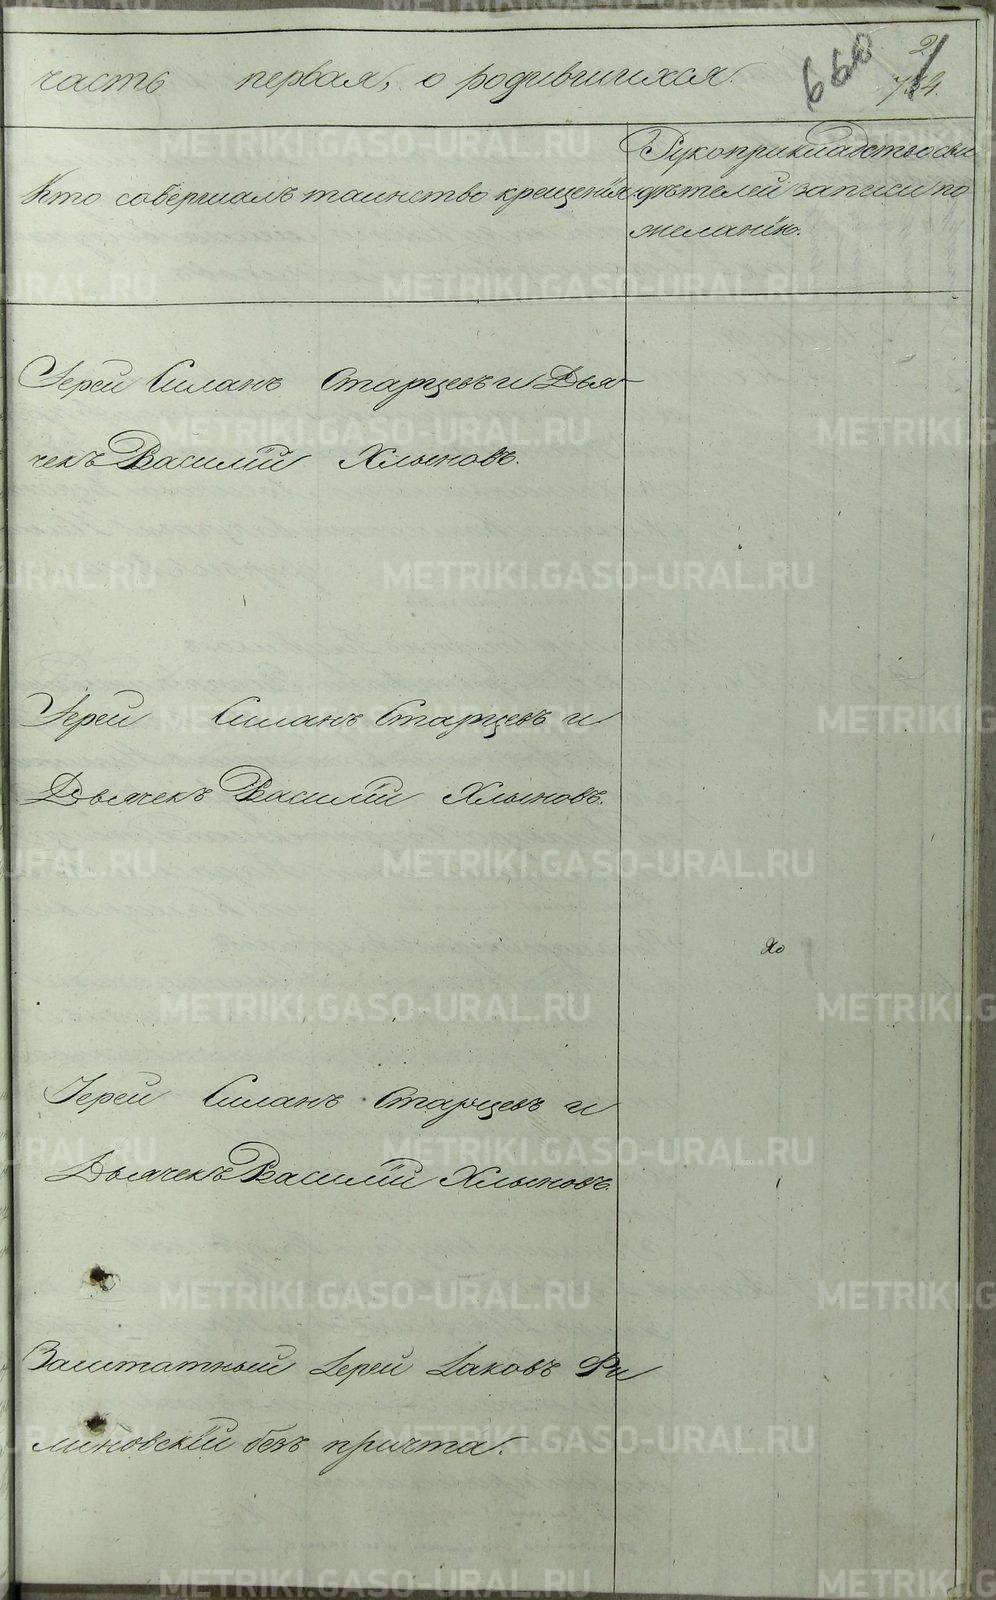 2
660
часть первая, о родившихся.
Кто совершалъ таинство крещенія.
Рукоприкладство сви
дѣтелей записи по
желанію.
Іерей Силанъ Старцевъ и Дья-
чекъ Василій Хлыновъ.
Іерей Силанъ Старцевъ и
Дьячекъ Василій Хлыновъ.
Іерей Силанъ Старцевъ и
Дьячекъ Василій Хлыновъ.
Заштатный Іерей Іаковъ Фи
линовскій безъ причта.
METRIKI.GASO-URAL.RU